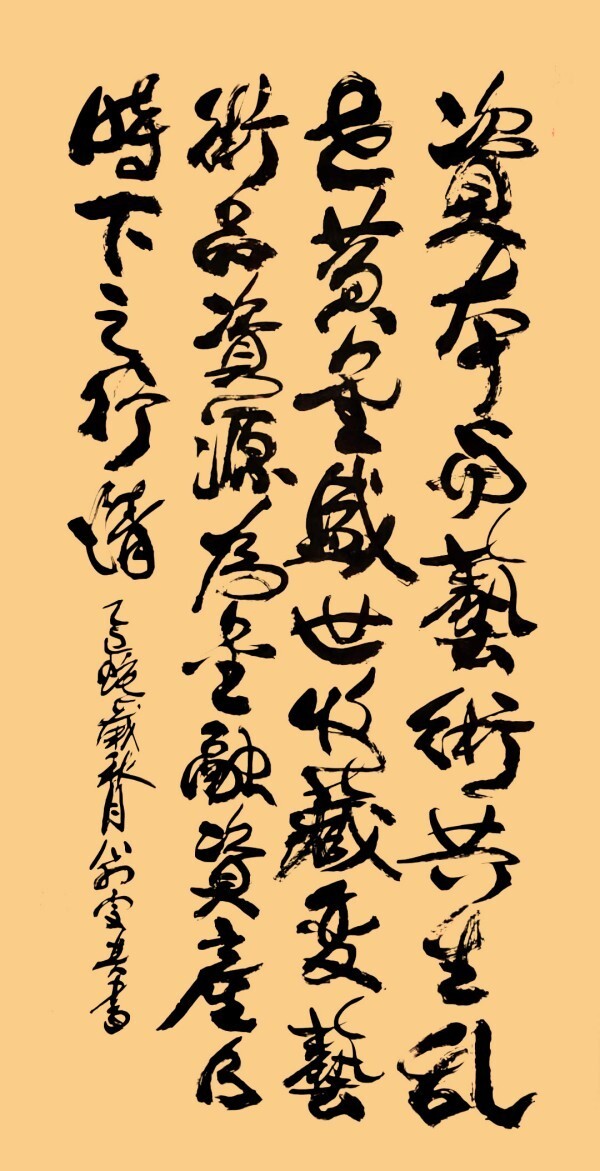 資本与藝術共生乱
世黄金盛世收藏变藝
術品資源為金融資產乃
時下之行情
乙巳蛇歲秋月書